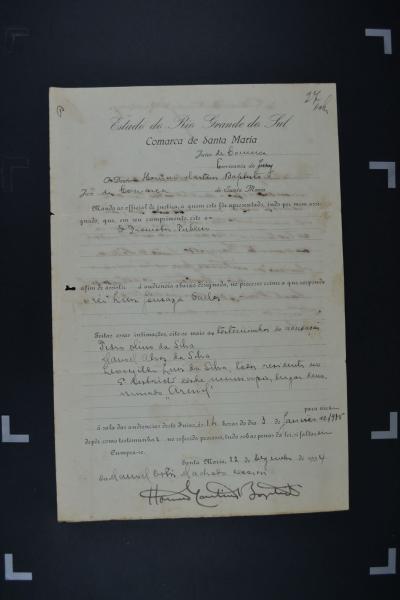 27
Estado do Rio Grande do Sul
Comarca de Santa Maria
Juizo de Comarca
Escrivania do Jury
O Doutor Homero Martins Baptista
Juiz de Comarca de Santa Maria
Mando ao official de justiça, a quem este fôr apresentado, indo por mim assi-
gnado, que, em seu cumprimento, cite o
D. Promotor Publico
afim de assistir á audiencia abaixo designada, no processo crime a que responde
o réo
Feitas essas intimações, cite-se mais as testemunhas de accusação
Pedro da Silva
Manoel Alves da Silva
Luiz da Silva, todos residentes no
5º districto deste municipio, lugar deno-
minado "Arenal"
para virem
á sala das audiencias deste Juizo, ás 14 horas do dia 3 de Janeiro de 1935
depôr como testemunhas no referido processo, tudo sob as penas da lei, si faltarem
Cumpra-se.
Santa Maria, 22 de Dezembro de 1934
Eu Manoel Machado escrivão
Homero Martins Baptista